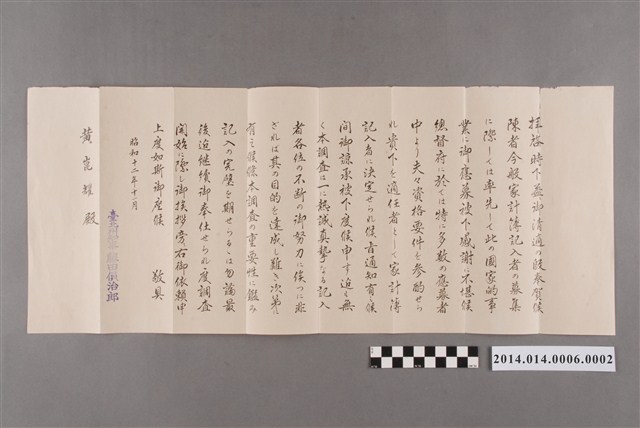 拝啓時下益御清適の段奉賀候
陳者今般家計簿記入者の募集
に際しては率先して此の国家的事
業に御應募被下感謝に不堪候
總督府に於ては特に多数の應募者
中より夫々資格要件を参酌せら
れ貴下を適任者として家計簿
記入者に決定せられ候旨通知有之候
間御諒承被下度候申す迄も無
く本調査は一に熱誠真摯なる記入
者各位の不断の御努力に俟つに非
ざれば其の目的を達成し難き次第に
有之候條本調査の重要性に鑑み
記入の完璧を期せらるるは勿論最
後迄継続御奉仕せられ度調査
開始に際し御挨拶旁右御依頼申
上度如斯御座候 敬具
昭和十二年十一月
治郎
黄 耀 殿
2014.014.0006.0002